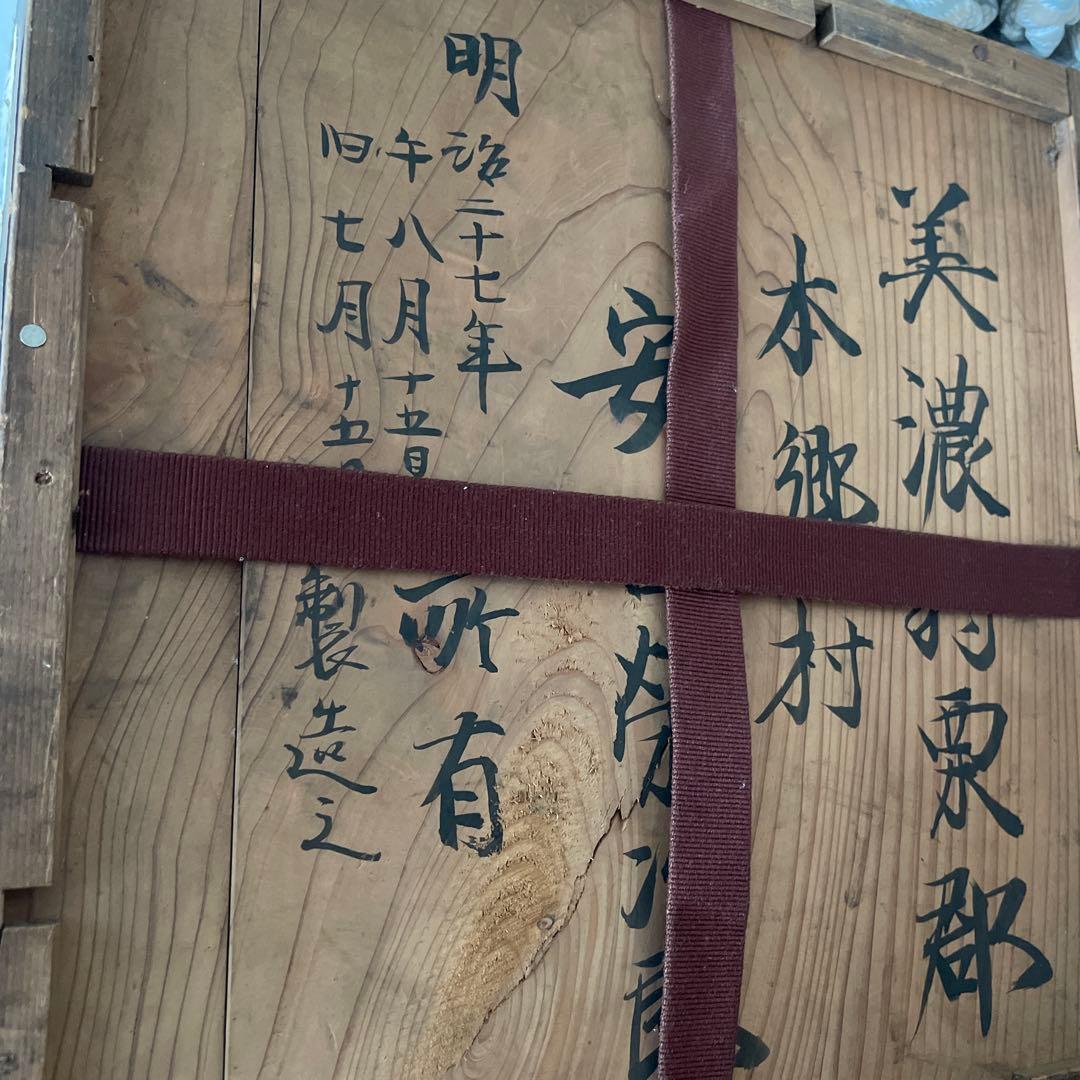 美濃羽栗郡
本郷村
安榮治
所有
明治二十七年
午八月十五日
旧七月十五日製造之